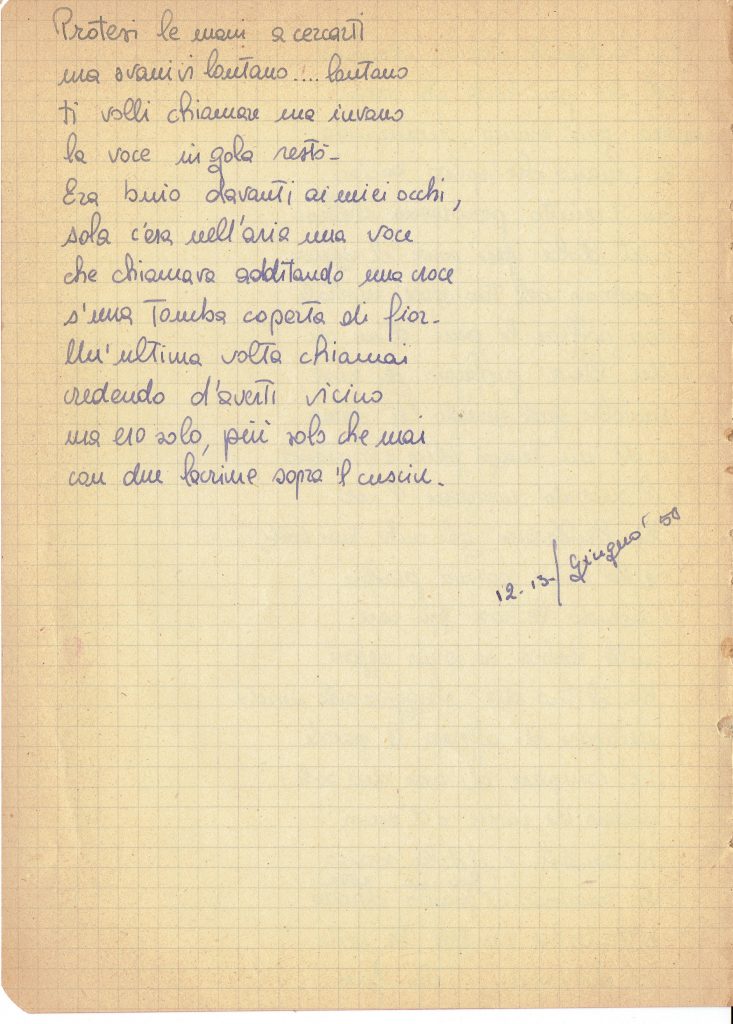 Protesi le mani a cercarti
ma svanivi lontano.... lontano
ti volli chiamare ma invano
la voce in gola restò-
Era buio davanti ai miei occhi,
sola c'era nell'aria una voce
che chiamava additando una croce
s'una Tomba coperta di fior-
Un'ultima volta chiamai
credendo d'averti vicino
ma ero solo, più solo che mai
con due lacrime sopra 'l cuscin.
12-13/Giugno' 50